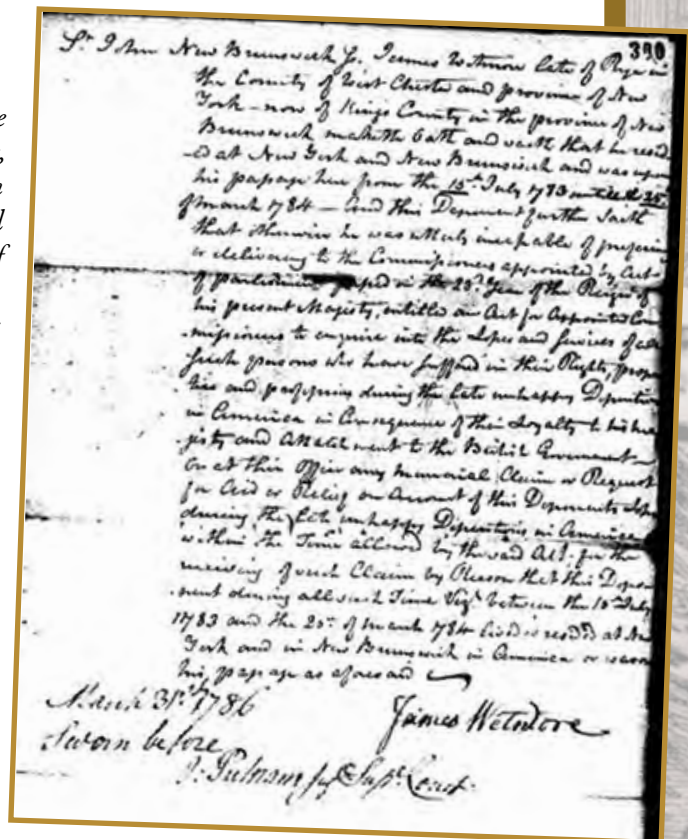 390
St John New Brunswick Js. James Wetmore late of Rye in
the County of West Chester and province of New
York – now of Kings County in the province of New
Brunswick maketh Oath and saith that he resid
-ed at New York and New Brunswick and was upon
his passage here from the 15th July 1783 untill the 25th
of march 1784 – And this Deponent further saith
that otherwise he was utterly incapable of
or delivering to the Commissioners appointed by Act
of parliament passed in the 23d Year of the Reign of
his present Majesty, entitled an Act for Appointed Com
-missioners to enquire into the Losses and Services of all
such persons who have suffered in their Rights, proper
ties and possessions during the late unhappy
in America in Consequence of their Loyalty to his ma
-jesty and Attatchment to the British Government –
or at their Office any memorial Claim or Request
for Aid or Relief on Account of this Deponents
during the late unhappy in America
within the Time allowed by the said Act. for the
receiving of such Claim by Reason that this Depo
-nent during all such Time Vizt between the 15th July
1783 and the 25th of march 1784 at New
York and in New Brunswick in America or was on
his passage as aforesaid
March 31st 1786
James Wetmore
Sworn before
J. Putnam Court
e
n
d
f